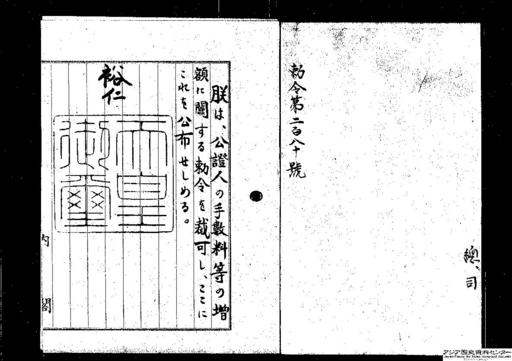 勅令第二百八十號
總、司
朕は、公證人の手數料等の増
額に關する勅令を裁可し、ここに
これを公布せしめる。
裕仁
天皇
御璽
内閣
アジア歴史資料センター